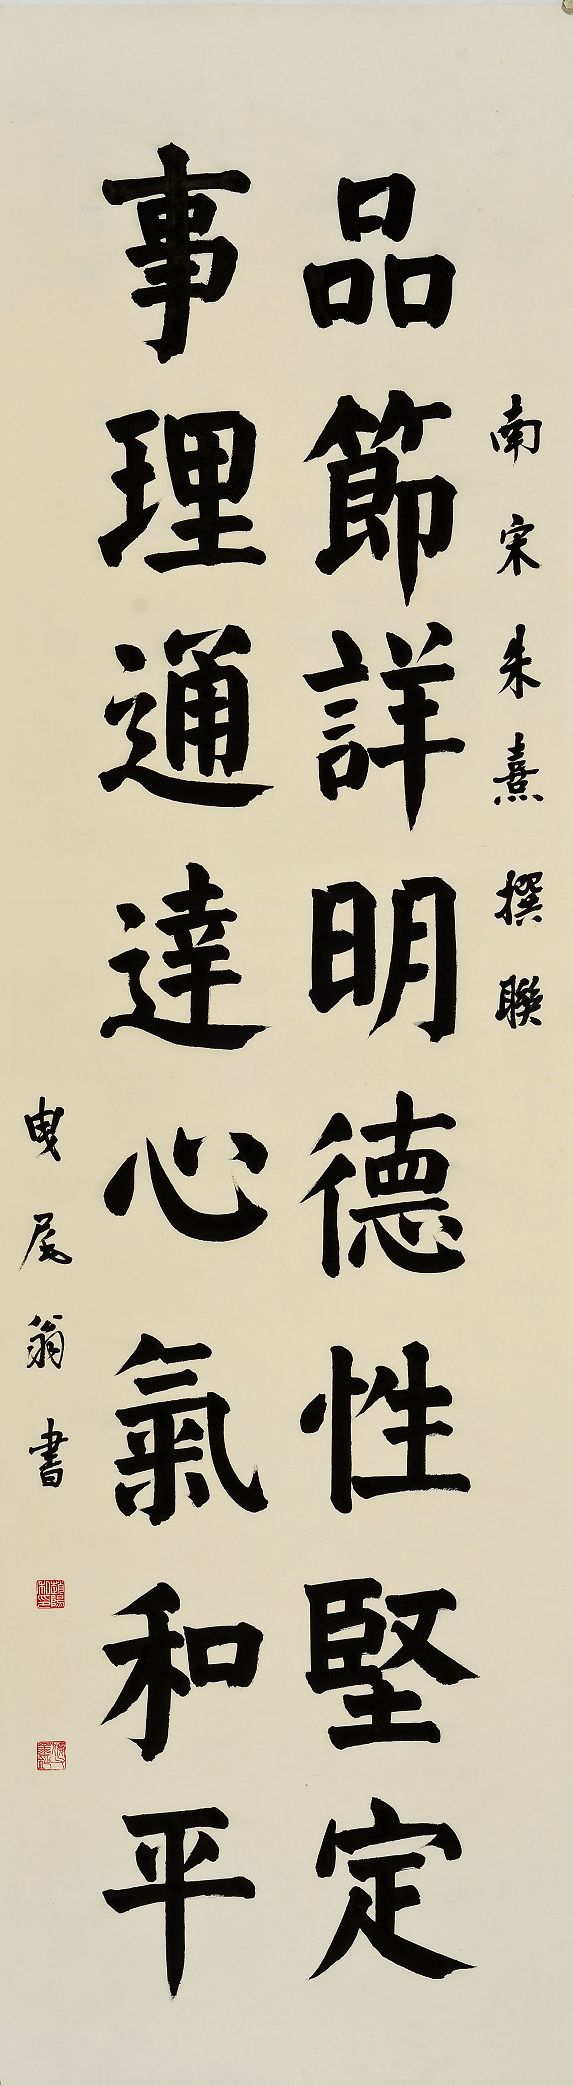 南宋朱熹撰聯
品節詳明德性堅定
事理通達心氣和平
曳尾翁書